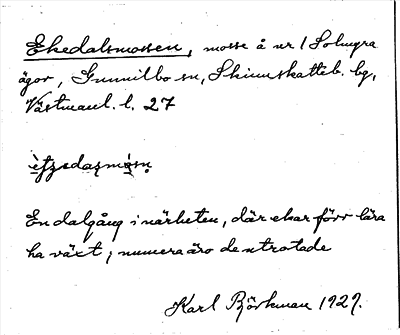 Ekedalsmossen, mosse å nr 1 Solmyra
ägor, Gunnilbo sn, Skinnskatteb. bg,
Västmanl. l. 27
En dalgång i närheten, där ekar förr lära
ha växt; numera äro de utrotade
Karl Björkman 1929.